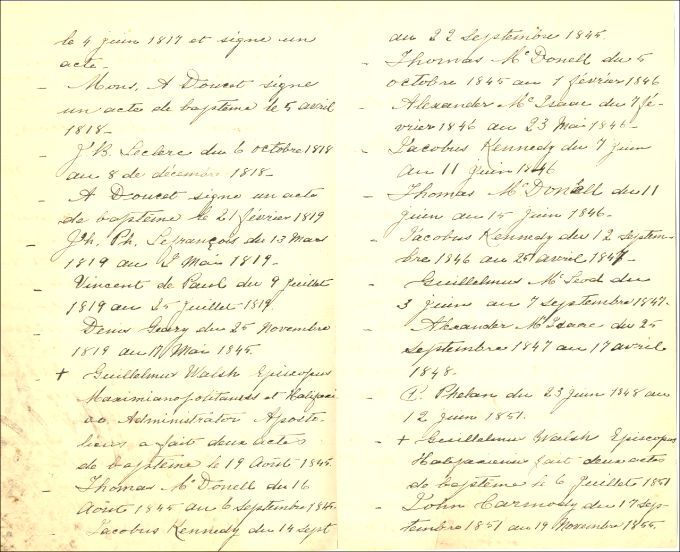 le 4 juin 1817 et signe un
acte-
- Mons. A Doucet signe
un acte de baptême le 5 avril
1818-
- J. B. Leclerc du 6 octobre 1818
au 8 de décembre 1818-
- A Doucet signe un acte
de baptême le 21 février 1819
- Jh. Ph. Lefrançois du 13 Mars
1819 au 2 Mai 1819-
- Vincent de Paul du 9 juillet
1819 au 25 juillet 1819.
- Denis Geary du 25 Novembre
1819 au 17 Mai 1845.
+ Guillelmus Walsh Episcopus
Maximianopolitanus et Halifaxi
Administrator Aposto-
licus a fait deux actes
de baptême le 19 Août 1845.
- Thomas Mc Donell du 16
Août 1845 au 6 septembre 1845-
- Jacobus Kennedy du 14 sept
au 22 Septembre 1845.
- Thomas Mc Donell du 5
octobre 1845 au 1 février 1846
- Alexander Mc Isaac du 7 fé-
vrier 1846 au 23 Mai 1846-
- Jacobus Kennedy du 7 juin
au 11 juin 1846
- Thomas Mc Donell du 11
juin au 15 juin 1846-
- Jacobus Kennedy du 12 septem-
bre 1846 au 25 avril 1847-
- Guillelmus Mc Leod du
3 juin au 7 septembre 1847.
- Alexander Mc Isaac du 25
septembre 1847 au 17 avril
1848.
- P. Phelan du 23 juin 1848 au
12 juin 1851.
- + Guillelmus Walsh Episcopus
fait deux actes
de baptême le 6 juillet 1851
- John Carmody du 17 sep-
tembre 1851 au 19 Novembre 1855.